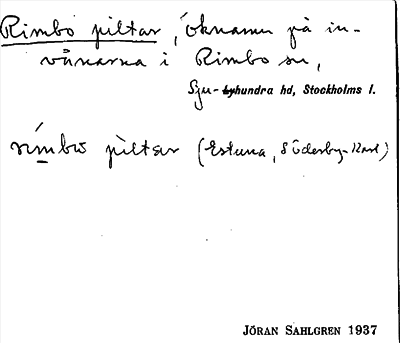 Rimbo piltar, öknamn på in-
vånarna i Rimbo sn,
Sju-hundra hd, Stockholms l.
rímbω pìltar (Estuna, Söderby-Karl)
JÖRAN SAHLGREN 1937